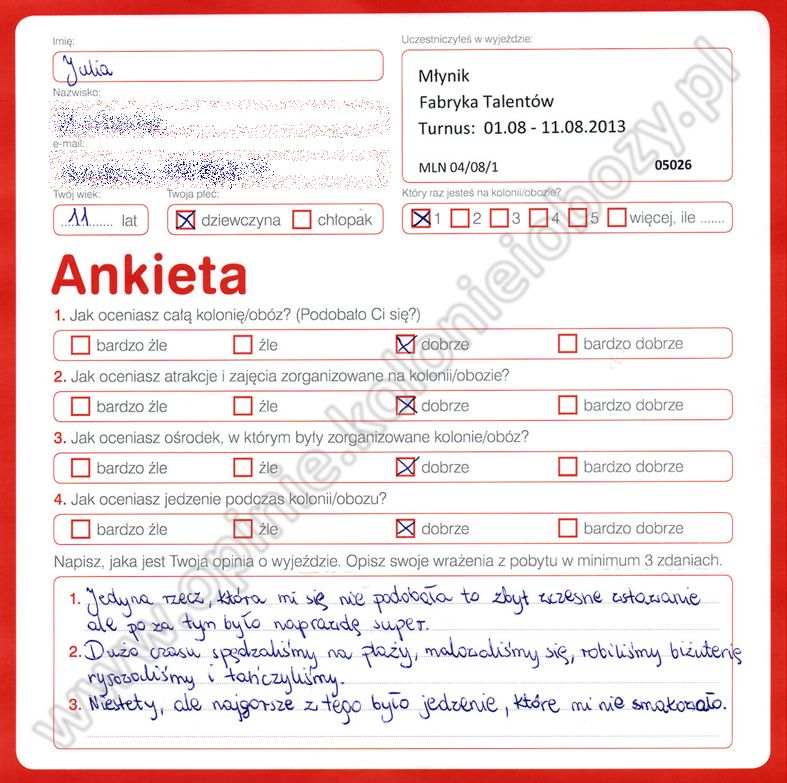 Imię:
Julia
Nazwisko:
e-mail:
Twój wiek:
11 lat
Twoja płeć:
dziewczyna chłopak
Uczestniczyłeś w wyjeździe:
Młynik
Fabryka Talentów
Turnus: 01.08 - 11.08.2013
MLN 04/08/1 05026
Który raz jesteś na kolonii/obozie?
1 2 3 4 5 więcej, ile .......
Ankieta
1. Jak oceniasz całą kolonię/obóz? (Podobało Ci się?)
bardzo źle źle dobrze bardzo dobrze
2. Jak oceniasz atrakcje i zajęcia zorganizowane na kolonii/obozie?
bardzo źle źle dobrze bardzo dobrze
3. Jak oceniasz ośrodek, w którym były zorganizowane kolonie/obóz?
bardzo źle źle dobrze bardzo dobrze
4. Jak oceniasz jedzenie podczas kolonii/obozu?
bardzo źle źle dobrze bardzo dobrze
Napisz, jaka jest Twoja opinia o wyjeździe. Opisz swoje wrażenia z pobytu w minimum 3 zdaniach.
1. Jedyna rzecz, która mi się nie podobała to zbyt wczesne wstawanie
ale po za tym było naprawdę super.
2. Dużo czasu spędzaliśmy na plaży, malowaliśmy się, robiliśmy biżuterię
rysowaliśmy i tańczyliśmy.
3. Niestety, ale najgorsze z tego było jedzenie, które mi nie smakowało.
www.opinie.kolonieiobozy.pl